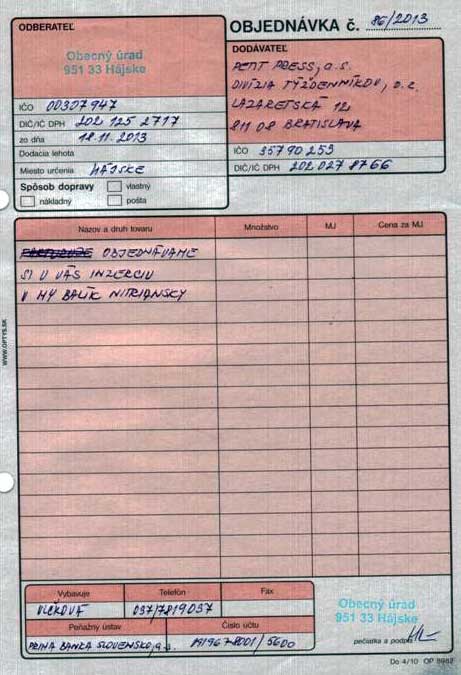 ODBERATEĽ
Obecný úrad
951 33 Hájske
IČO 00307947
DIČ/IČ DPH 202 125 2717
zo dňa 18.11.2013
Dodacia lehota
Miesto určenia HÁJSKE
Spôsob dopravy vlastný
nákladný pošta
OBJEDNÁVKA č. 86/2013
DODÁVATEĽ
PETIT PRESS, a.s.
DIVÍZIA TÝŽDENNÍKOV, o.z.
LAZARETSKÁ 12
811 08 BRATISLAVA
IČO 35790253
DIČ/IČ DPH 202 027 8766
Názov a druh tovaru Množstvo MJ Cena za MJ
OBJEDNÁVAME
SI U VÁS INZERCIU
V MY BALÍK NITRIANSKY
WWW.OPTYS.SK
Vybavuje Telefón Fax
VLČKOVÁ 037/7819037
Peňažný ústav Číslo účtu
PRIMA BANKA SLOVENSKO, a.s. /5600
Obecný úrad
951 33 Hájske
pečiatka a podpis
Do 4/10 OP 8982